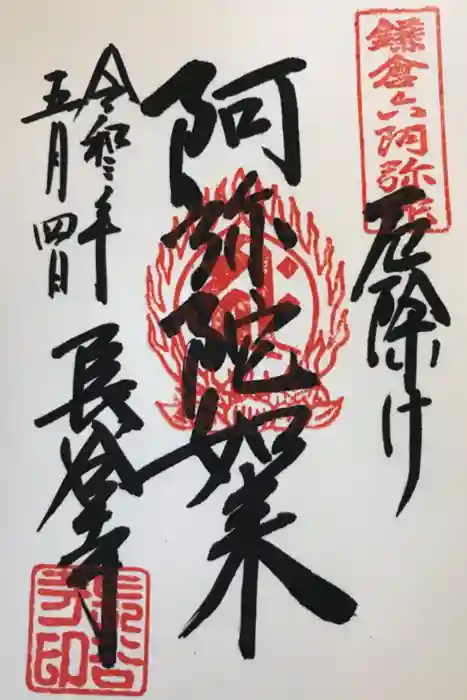 鎌倉六阿弥陀
厄除け
阿弥陀如来
令和三年
五月四日
長谷寺
長谷寺印